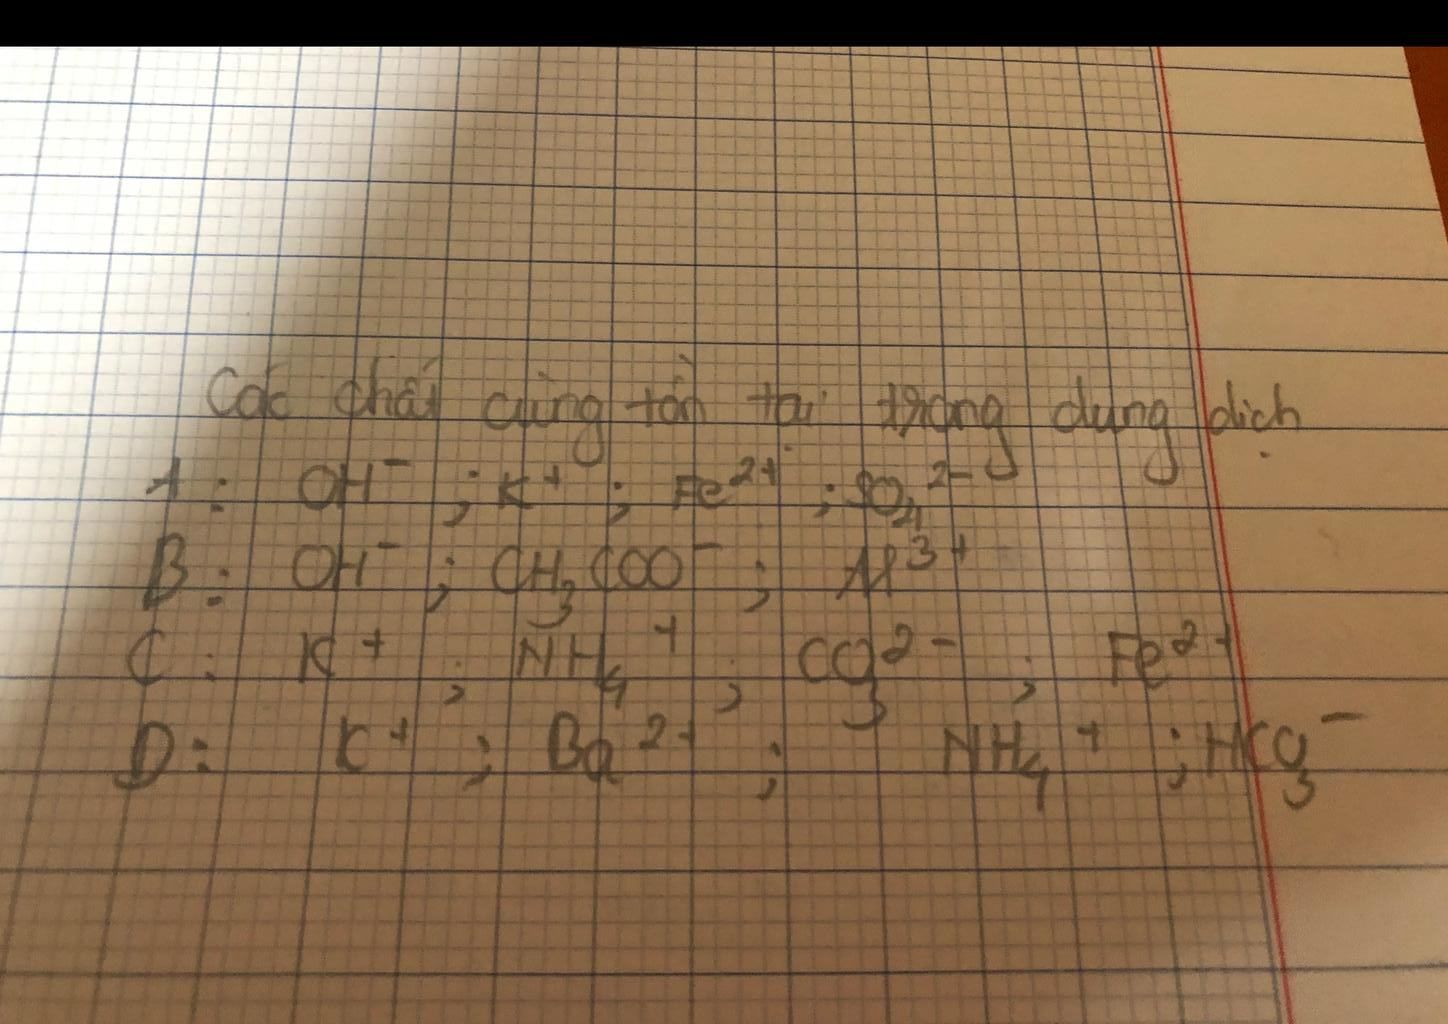 Các chất cùng tồn tại trong dung dịch
A: OH⁻ ; K⁺ ; Fe²⁺ ; SO₄²⁻
B: OH⁻ ; CH₃COO⁻ ; Al³⁺
C: K⁺ ; NH₄⁺ ; CO₃²⁻ ; Fe²⁺
D: K⁺ ; Ba²⁺ ; NH₄⁺ ; HCO₃⁻